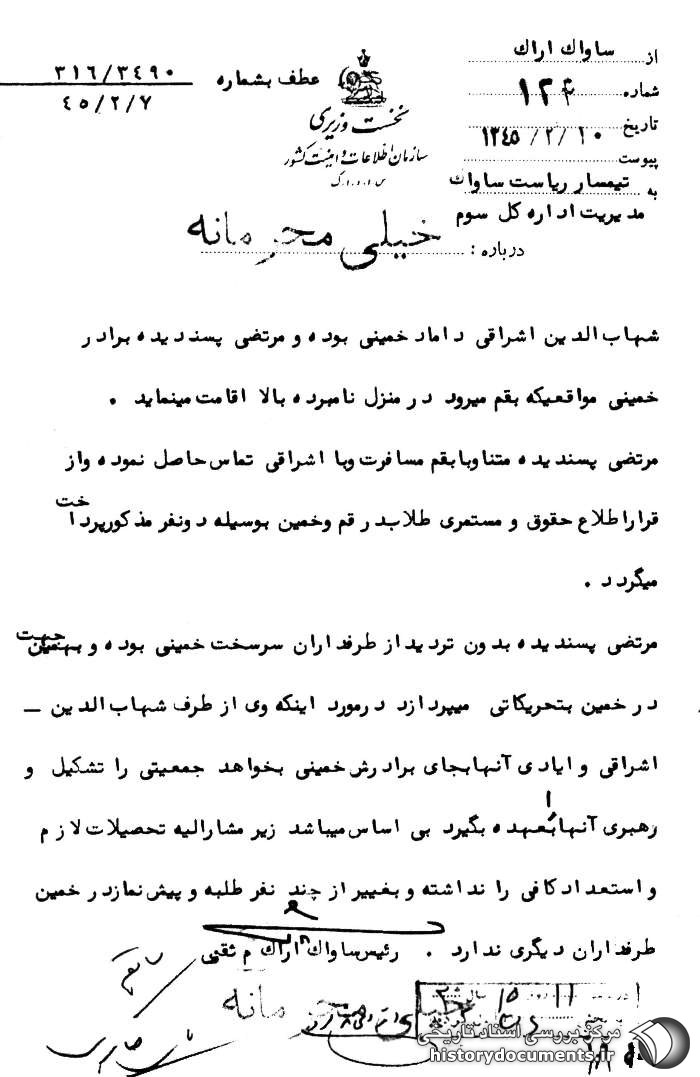 از ساواك اراك
شماره ۱۲۴
تاریخ ۱۰ /۲/ ۱۳۴۵
پیوست
به تیمسار ریاست ساواك
مدیریت اداره کل سوم
عطف بشماره ۳۱۶/۳۴۹۰
۴۵/۲/۷
نخست وزیری
سازمان اطلاعات و امنیت کشور
س.ا.و.ا.ک
درباره :
خیلی محرمانه
شهاب الدین اشراقی داماد خمینی بوده و مرتضی پسندیده برادر
خمینی مواقعیکه بقم میرود در منزل نامبرده بالا اقامت مینماید .
مرتضی پسندیده متناوبا بقم مسافرت وبا اشراقی تماس حاصل نموده واز
قرار اطلاع حقوق و مستمری طلاب در قم وخمین بوسیله دونفر مذکور پرداخت
میگردد .
مرتضی پسندیده بدون تردید از طرفداران سرسخت خمینی بوده و بهمین جهت
در خمین بتحریکاتی میپردازد درمورد اینکه وی از طرف شهاب الدین –
اشراقی و ایادی آنها بجای برادرش خمینی بخواهد جمعیتی را تشکیل و
رهبری آنها بعهده بگیرد بی اساس میباشد زیرا مشارالیه تحصیلات لازم
و استعداد کافی را نداشته و بغییر از چند نفر طلبه و پیش نماز در خمین
طرفداران دیگری ندارد . رئیس ساواك اراك م ثقنی
خیلی محرمانه
مرکز بررسی اسناد تاریخی
historydocuments.ir